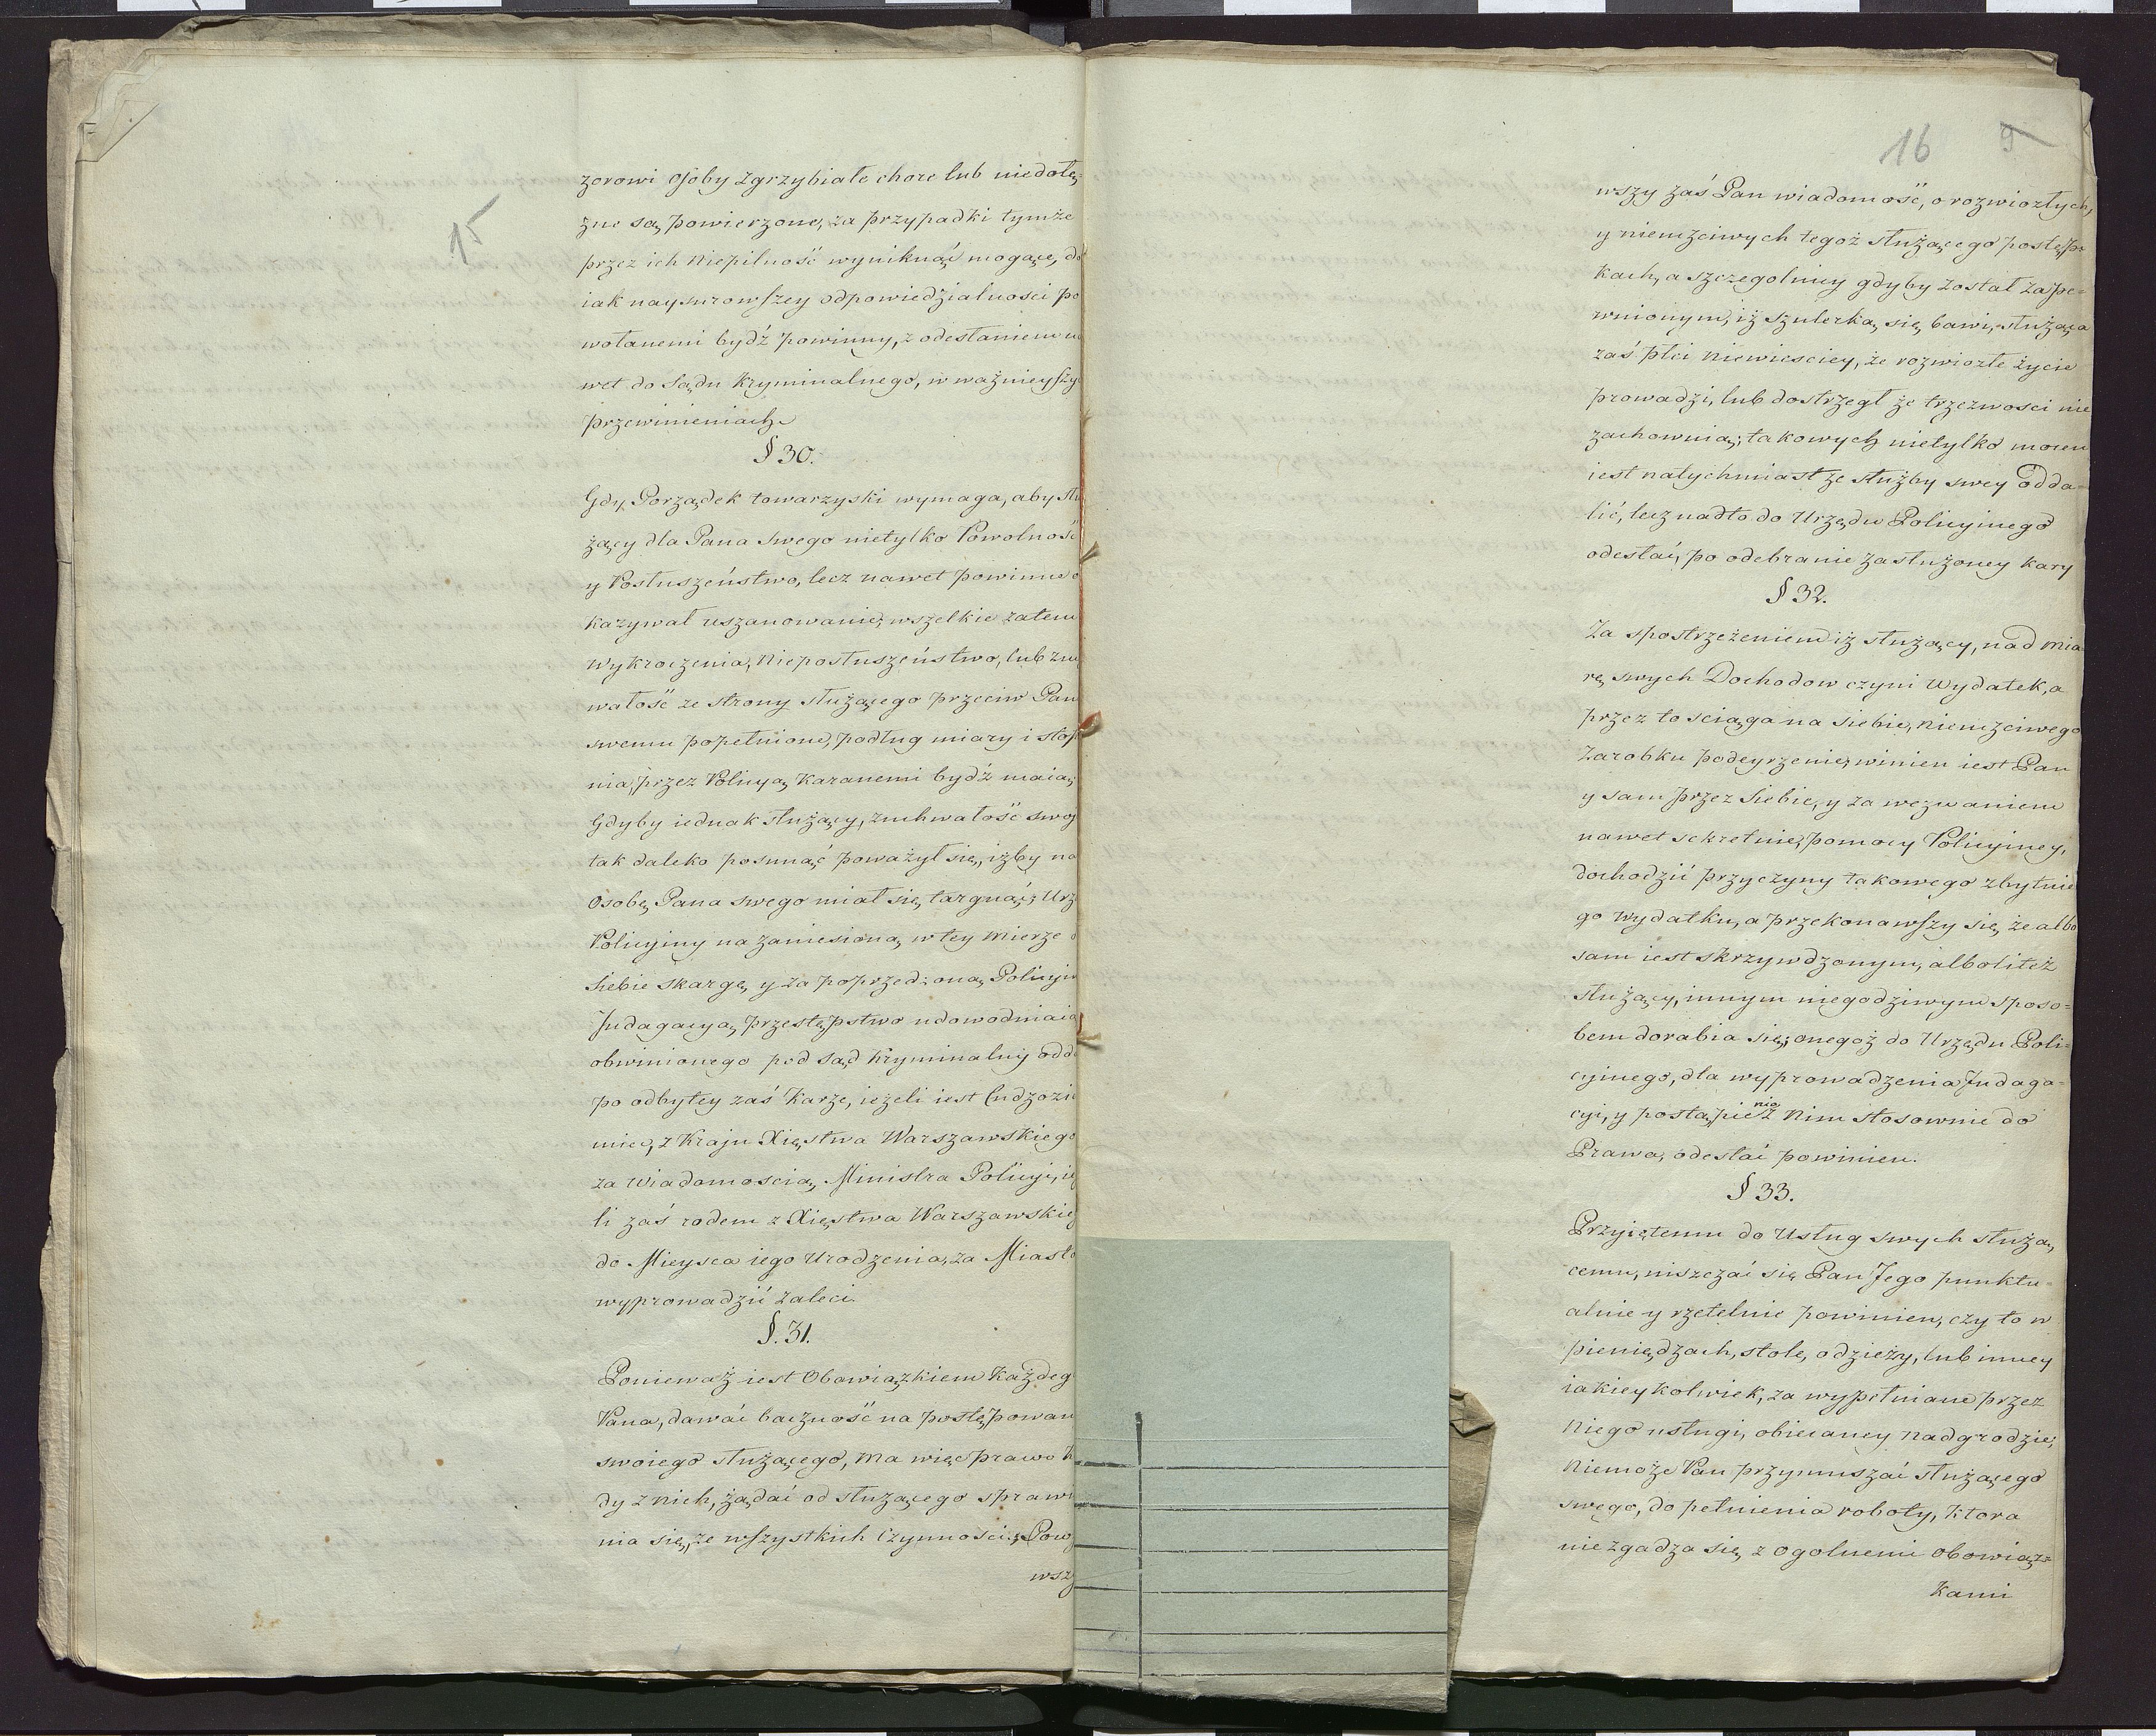 15
zorowi osoby zgrzybiałe chore lub niedołę=
żne są powierzone, za przypadki tymże
przez ich Niepilność wyniknąć mogące, do
iak naysurowszey odpowiedzialnosci po
wołanemi bydź powinny, z odesłaniem na
wet do Sądu Kryminalnego, w ważnieyszy
przewinieniach
§ 30.
Gdy Porządek towarzyski wymaga, aby słu
żący dla Pana Swego nietylko Powolność
y Posłuszeństwo, lecz nawet powinne o
kazywał uszanowanie, wszelkie zatem
wykroczenia, Nieposłuszeństwo, lub zuch
wałość ze strony służącego przeciw Pan
swemu popełnione, podług miary i stop
nia, przez Policyą karanemi bydź maią;
Gdyby iednak służący, zuchwałość swoj
tak daleko posunąć poważył się, iżby na
Osobę Pana swego miał się targnąć; Urz
Policyiny na zaniesioną w tey mierze do
siebie skargę, y za poprzedzoną Policyin
Indagacyą, przestępstwo udowodniaią
obwinionego pod sąd kryminalny odd
po odbytey zaś karze, ieżeli iest Cudzozie
miec, z Kraju Xięstwa Warszawskiego
za wiadomoscią Ministra Policyi, ie
li zaś rodem z Xięstwa Warszawskieg
do Mieysca iego urodzenia, za Miasto
wyprowadzić zaleci.
§. 31.
Ponieważ iest Obowiązkiem każdeg
Pana, dawać baczność na postępowan
swoiego służącego, ma więc prawo k
dy z nich, żądać od służącego spraw
nia się, ze wszystkich Czynności; Pow
wszy
16 9
wszy zaś Pan wiadomość, o rozwiozłych,
y niemzciwych tegoż służącego postęp=
kach, a szczegolniey gdyby został zape=
wnionym, iż szulerką się bawi, służąca
zaś płci Niewiesciey, że rozwiozłe życie
prowadzi, lub dostrzegł że trzezwosci nie
zachowuią; takowych nietylko mocen
iest natychmiast ze służby swey odda=
lić, lecz nadto do Urzędu Policyinego
odesłać, po odebranie zasłużoney kary
§ 32.
Za spostrzeżeniem iż służący, nad mia
rę swych Dochodow czyni wydatek, a
przez to sciąga na siebie, niemzciwego
Zarobku podeyrzenie, winien iest Pan
y sam przez siebie, y za wezwaniem
nawet sekretnie, pomocy Policyiney,
dochodzić przyczyny takowego zbytnie
go wydatku, a przekonawszy się, że albo
sam iest skrzywdzonym, albo li też
służący, innym niegodziwym sposo=
bem dorabia się; onegoż do Urzędu Poli=
cyinego, dla wyprowadzenia Indaga=
cyi, y postąpie nia z Nim stosownie do
Prawa, odesłać powinien.
§ 33.
Przyiętemu do Usług swych służą,
cemu, uiszczać się Pan Jego punktu=
alnie y rzetelnie powinien, czy to w
pieniędzach, stole, odzieży, lub inney
iakiey kolwiek, za wypełniane przez
Niego usługi, obiecaney Nadgrodzie;
Niemoże Pan przymuszać służącego
swego, do pełnienia roboty, ktora
niezgadza się, z ogolnemi obowiąz=
kami